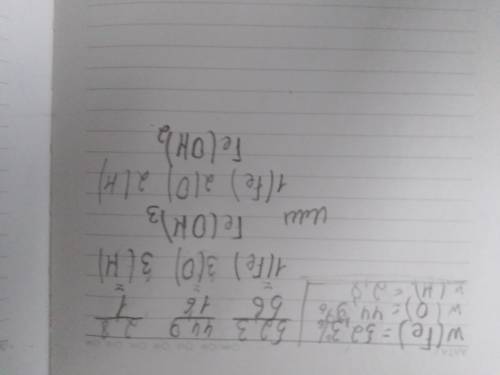 w(Fe) = 52,3% 52,3/56 44,9/16 2,8/1
w(O) = 44,9%
w(H) = 2,8
1(Fe) 3(O) 3(H)
Fe(OH)3
или
1(Fe) 2(O) 2(H)
Fe(OH)2